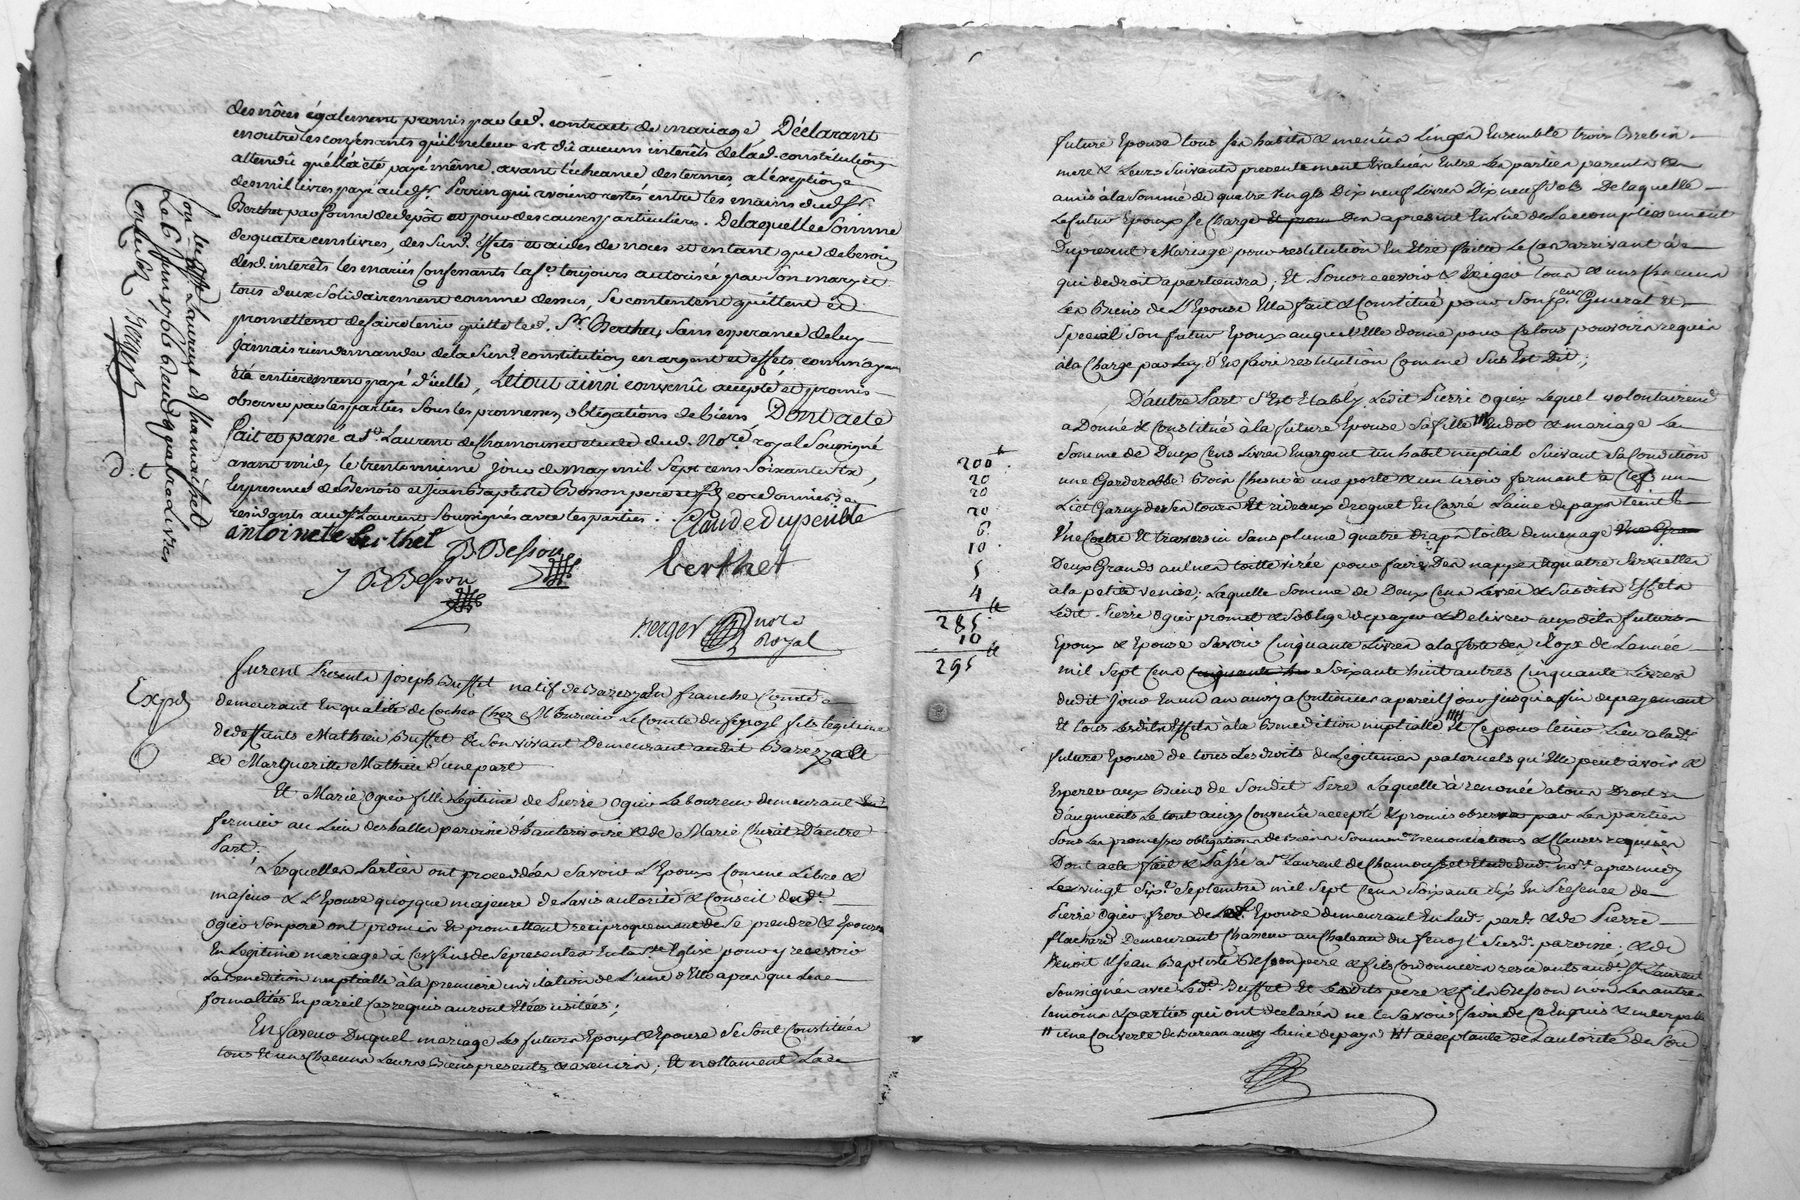 des nôces également promis par led. contract de mariage Déclarant
en outre les consenants qu'il ne leur est dû aucuns interêts de lad. constitution
attendû quélla été payé même avant l'écheance des termes a l'éxeption
de mil livres payé aud. Sr. Perrin qui avoient restés entre les mains dud. Sr.
Berthet par forme de depôt et pour des causes particulieres. De laquelle Somme
de quatre cens livres, des sus d. éffets et aides de noces et entant que de besoin
desd. interêts les mariés consenants la fe. toujours autorisée par son mary et
tous deux solidairement comme dessus, se contentent quittent et
promettent de faire tenir quitte led. Sr. Berthet, sans esperance de luy
jamais rien demander de la susd. constitution en argent et effets comm'ayant
été entierement payé d'icelle, Le tout ainsi convenû accepté et promis
observer par les parties sous les promesses, obligations de biens Dont acte
Fait et passé a St. Laurent de Chamousset etude dud. Nore. royal Soussigné
avant midy le trente unième jour de may mil Sept cens Soixante dix,
En presence de Benoit et Jean Baptiste Besson pere et fils cordonniers
residants aud. St. Laurent Soussignés avec les parties.
Claude dupeuble
antoinete berthet
B Besson
berthet
J B Besson
Berger nore
Royal
Con. les St Laurens de Chamousset
Le 6 juin 1766 Reçu quatre livres
Berger
d. t
Expd
Furent Presents joseph Buffet natif de Barezza En franche Comté
demeurant En qualité de Cocher Chez Monsieur Le Comte du fenoyl fils legitime
de deffunts Mathieu Buffet En son vivant Demeurant audit Barezza et
de Margueritte Mathieu d'une part
Et Marie Ogier fille Legitime de Pierre Ogier Laboureur demeurant
fermier au Lieu des halles paroisse d'hauterivoire et de Marie Churat D'autre
Part.
Lesquelles Parties ont procedées Savoir L'Epoux Comme Libre et
majeur et L'Epouse quoyque majeure de Lavis autorité et Conseil dudt.
Ogier son pere ont promis et promettent reciproquement de Se prendre et Epouser
En Legitime mariage à Ces fins de Se presenter En La Ste Eglise pour y recevoir
La benediction nuptialle à la premiere invitation de L'une d'Elles apres que Les
formalités En pareil Cas requis auront Etées usitées;
En faveur Duquel mariage Les futurs Epoux et Epouse Se Sont Constitués
tous Et uns Chacuns Leurs Biens presents et avenirs; Et nottament La
future Epouse tous Ses habits et menües Linges Ensemble trois Brebis
mere et Leurs Suivants presentement Evalués Entre Les parties parents et
amis à la Somme de quatre vingts Dix neuf Livres Dix neuf Sols De laquelle
Le futur Epoux Se Charge Et pour Des apresent En vüe de Laccomplissement
Du present Mariage pour restitution En Etre faitte Le Cas arrivant à
qui de droit apartiendra; Et Pour recevoir et Exiger tous et uns Chacuns
Les Biens de L'Epouse Ella fait et Constitué pour Son pr.eur General Et
Special Son futur Epoux auquel Elle donne pour Ce tous pouvoirs requis
à la Charge par Luy d'En faire restitution Comme Sus Est Dit;
D'autre Part S'Est Etably Ledit Pierre Ogier Lequel volontairemt.
a Donné et Constitué à la future Epouse Sa fille En dot et mariage La
Somme de Deux Cens Livres En argent Un habit nuptial Suivant Sa Condition
une Garderobbe bois Chesne à une porte et un tiroir fermant à Clef un
Lict Garny de Ses tours Et rideaux droguet En Carré Laine de pays teint
Une Coetre Et traversin Sans plume quatre draps toille de menage
Deux Grands aulnes toille virée pour faire Des nappes Et quatre Serviettes
à la petite venise; Laquelle Somme de Deux Cens Livres et Susdits Effets
Ledit Pierre Ogier promet et S'oblige de payer et Delivrer aux dits futurs
Epoux et Epouse Savoir Cinquante Livres à la feste des Roys de Lannée
mil Sept Cens Soixante huit autres Cinquante Livres
dudit jour En un an ainsy à Continuer a pareil jour jusqu'a fin de payement
Et tous Lesdits Effets à la Benediction nuptialle Et Ce pour tenir Lieu à ladt.
future Epouse de tous Les droits de Legitimes paternels qu'Elle peut avoir et
Esperer aux Biens de Sondit Pere Laquelle à renoncé a tous Droits
d'augments Le tout ainsy Convenû accepté Et promis observer par Les parties
Sous Les promesses obligation de biens Soumons. renonciations et Clauses requises
Dont acte fait et Passé a St. Laurent de Chamousset Etude dud. nore. apres midy
Le vingt Sixe. Septembre mil Sept Cens Soixante dix En Presence de
Pierre Ogier frere de Epouse demeurant En Lad. pare. et de Pierre
flachard Demeurant Chasseur au Chateau du fenoyl Susd. paroisse. et de
Benoit et jean Baptiste Besson pere et fils Cordonniers residants aud. St. Laurent
Soussignés avec Ledt. Buffet Et Lesdits pere et fils Besson non Les autres
temoins et parties qui ont declarés ne le Savoir faire de Ce Enquis et interpellés
une Couverte de Bureau aussy Laine de pays acceptante de Lautorité de Son
200 tt
20
20
20
6
10
5
4
285 tt
10
295 tt